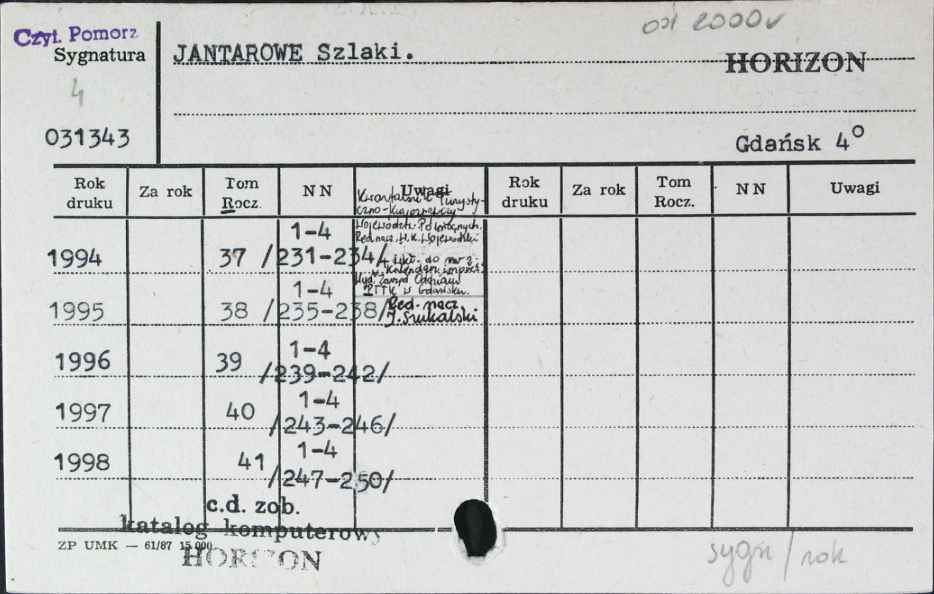 od 2000r
Czyt. Pomorz
Sygnatura
JANTAROWE Szlaki.
HORIZON
4
031343
Gdańsk 4°
Rok druku Za rok Tom Rocz. N N Uwagi Rok druku Za rok Tom Rocz. N N Uwagi
Kwartalnik Turysty-
czno-Krajoznawczy
Województw Północnych.
Red. nacz. H. K. Wojewódzki
do nr 2:
Kalendarz imprez.
Wyd. Zarząd Oddziału
PTTK w Gdańsku.
Red. nacz.
J. Szukalski
1994 37 1-4 /231-234/
1995 38 1-4 /235-238/
1996 39 1-4 /239-242/
1997 40 1-4 /243-246/
1998 41 1-4 /247-250/
c.d. zob.
katalog komputerowy
HORIZON
ZP UMK — 61/87 15.000
sygn/rok